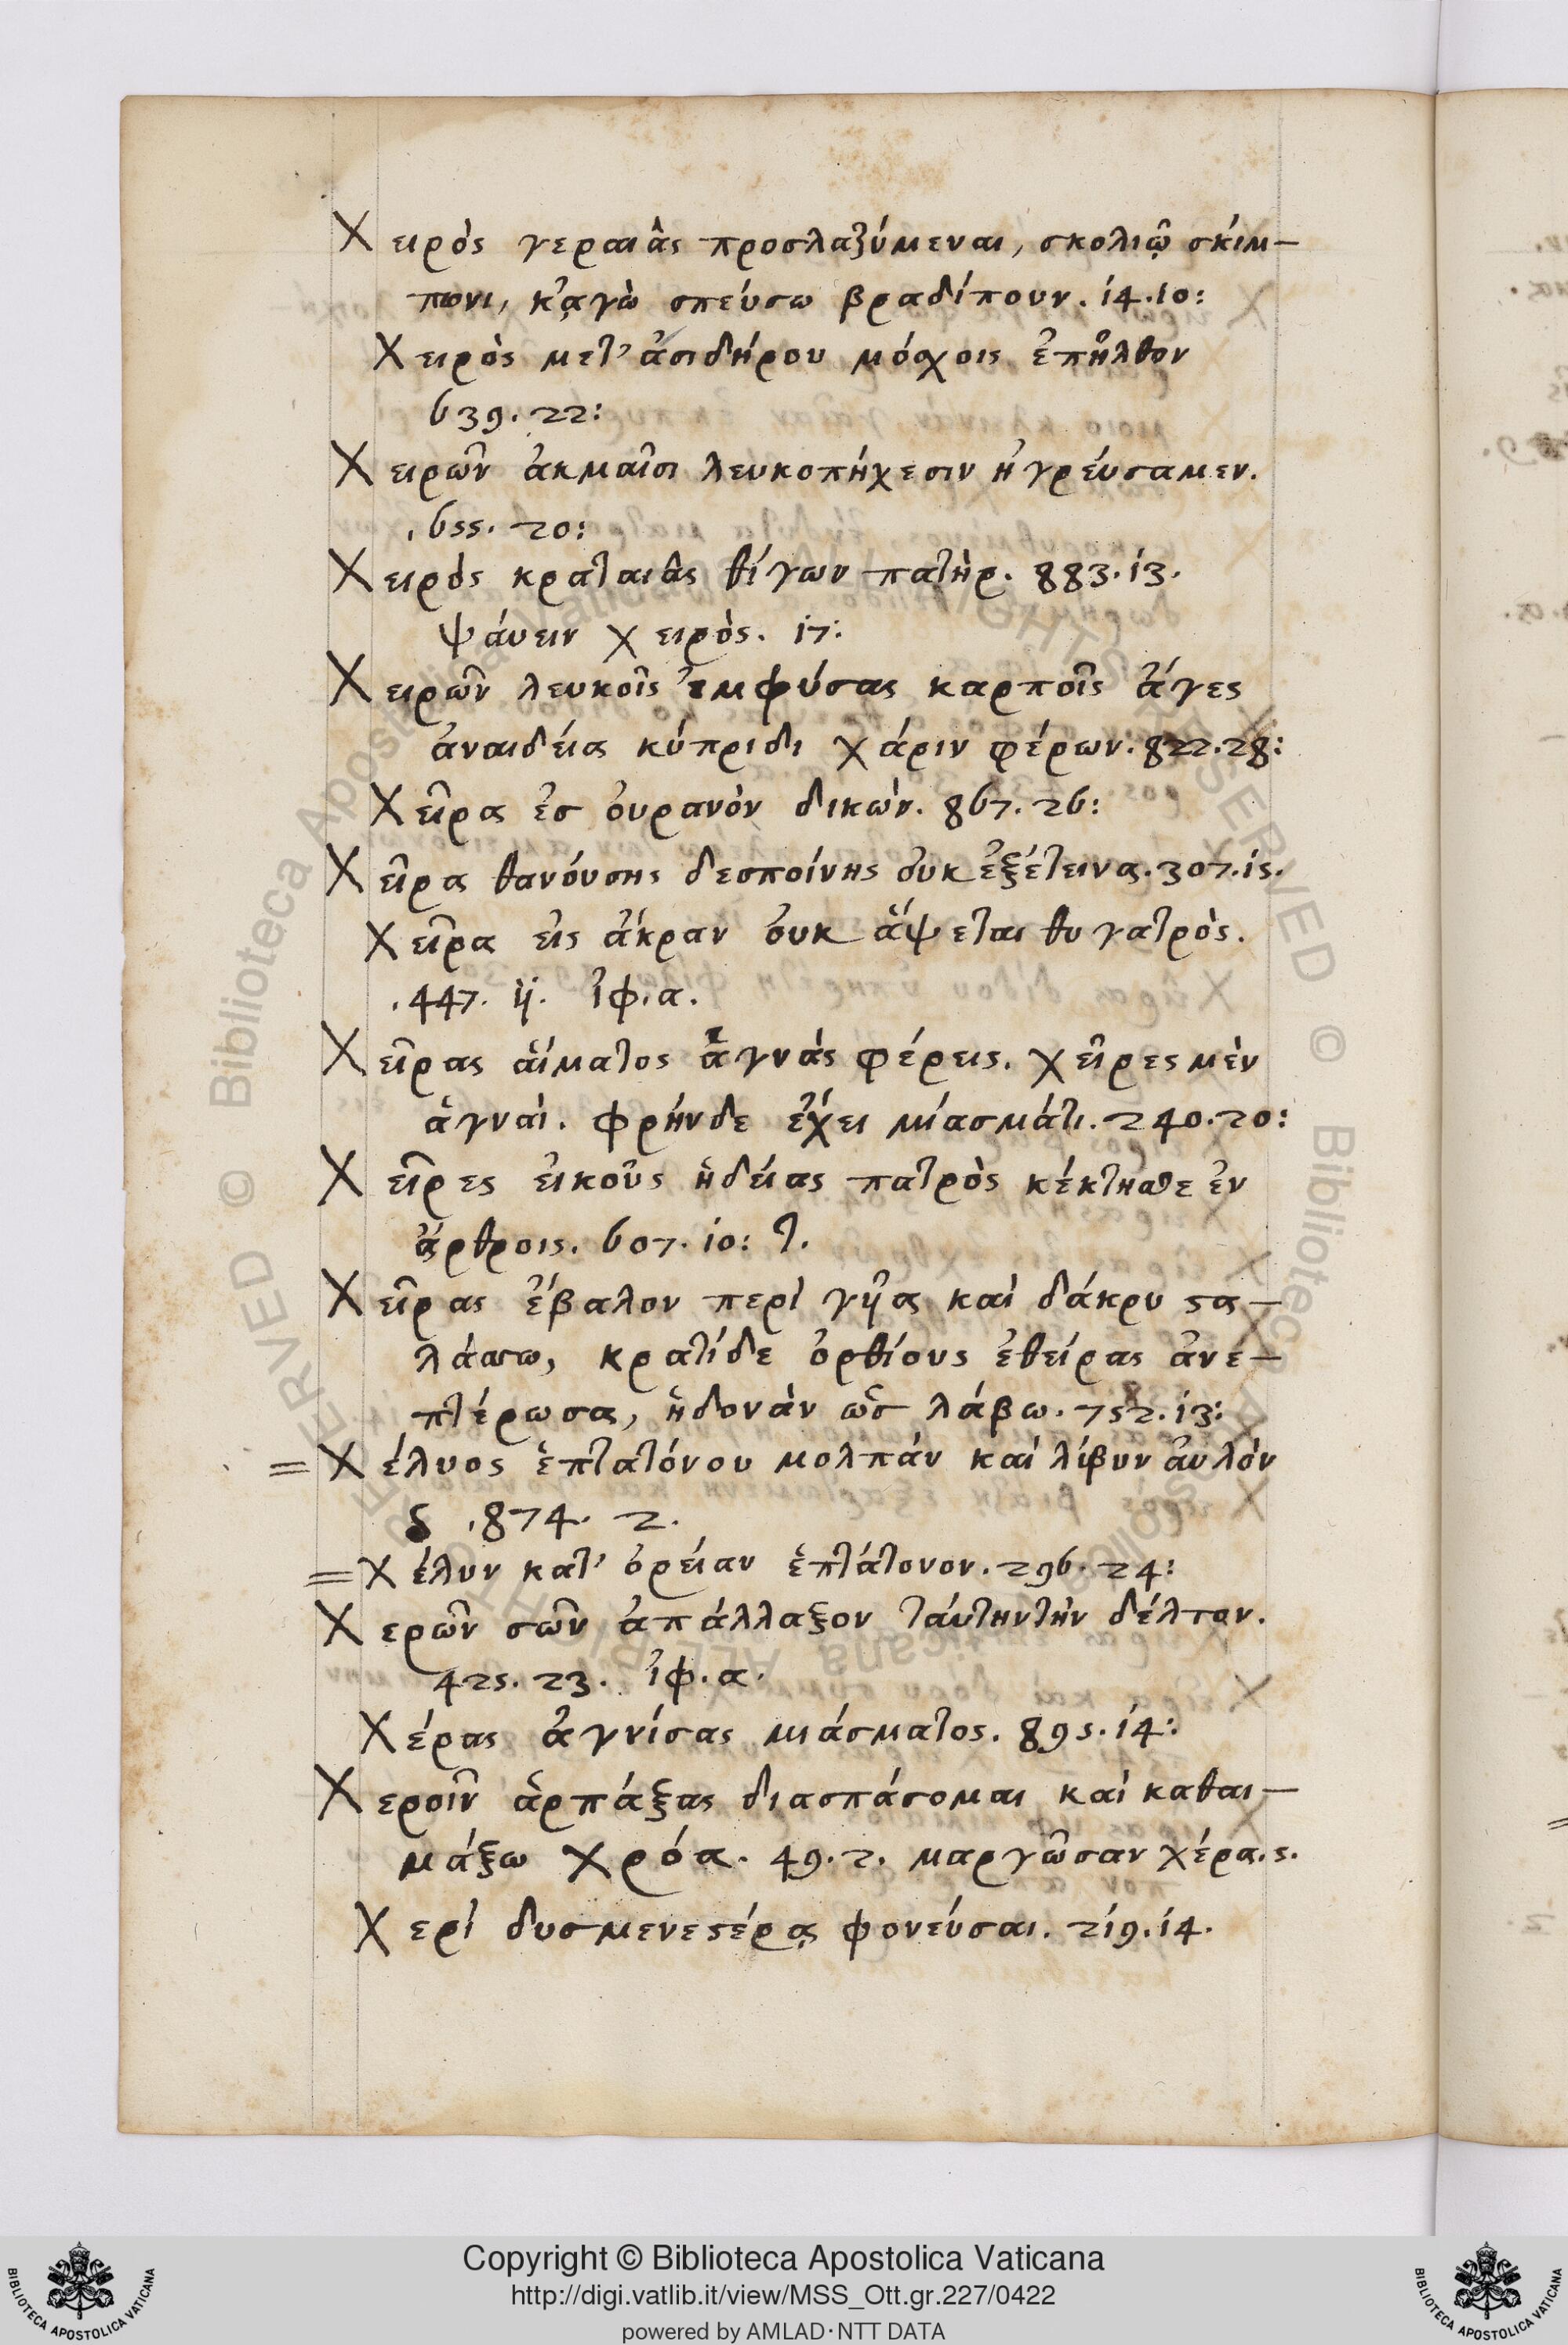 Χειρὸς γεραιᾶς προσλαζύμεναι, σκολιῷ σκίμ–
πωνι, κᾀγὼ σπεύσω βραδίπουν. 14.10:
Χειρὸς μετ' ἀσιδήρου μόσχοις ἐπῆλθον
639. 22:
Χειρῶν ἀκμαῖσι λευκοπήχεσιν ἠγρεύσαμεν.
.655. 20:
Χειρός κραταιᾶς θίγων πατὴρ. 883. 13.
ψάυειν χειρὸς. 17:
Χειρῶν λευκοῖς ἐμφύσας καρποῖς ἄγες
ἀναιδείᾳ κύπριδι χάριν φέρων. 822. 28:
Χεῖρα ἐσ ὀυρανὸν δικών. 867. 26:
Χεῖρα θανόυσης δεσποίνης ὀυκ ἐξέτεινα. 307. 15.
Χεῖρα εἰς ἄκραν ὀυκ ἅψεται θυγατρὸς.
.447. 11. ἰφ. α.
Χεῖρας ἁίματος ἁγνὰς φέρεις. χεῖρες μὲν
ἁγνάι. φρήνδε ἔχει μίασμάτι. 240. 20:
Χεῖρες εἰκοῦς ἡδείας πατρὸς κέκτησθε ἐν
ἄρθροις. 607. 10: τ.
Χεῖρας ἔβαλον περὶ γῦα καὶ δάκρυ ϛα–
λάσσω, κρατίδε ὀρθίους ἐθείρας ἀνε–
πτέρωσα, ἡδονὰν ὡσ λάβω. 752. 13:
= Χέλυος ἑπτατόνου μολπάν καὶ λίβυν ἀυλὸν
δ .874. 2.
= Χέλυν κατ' ὀρείαν ἑπτάτονον. 296. 24:
Χερῶν σῶν ἀπάλλαξον τάυτηντὴν δέλτον.
425. 23. ἰφ. α.
Χέρας ἁγνίσας μιάσματος. 895. 14:
Χεροῖν ἁρπάξας διασπάσομαι καὶ καθαι–
μάξω χρόα. 49. 2. μαργῶσαν χέρα. 5.
Χερὶ δυσμενεϛέρᾳ φονεύσαι. 219. 14.
Copyright © Biblioteca Apostolica Vaticana
http://digi.vatlib.it/view/MSS_Ott.gr.227/0422
powered by AMLAD·NTT DATA